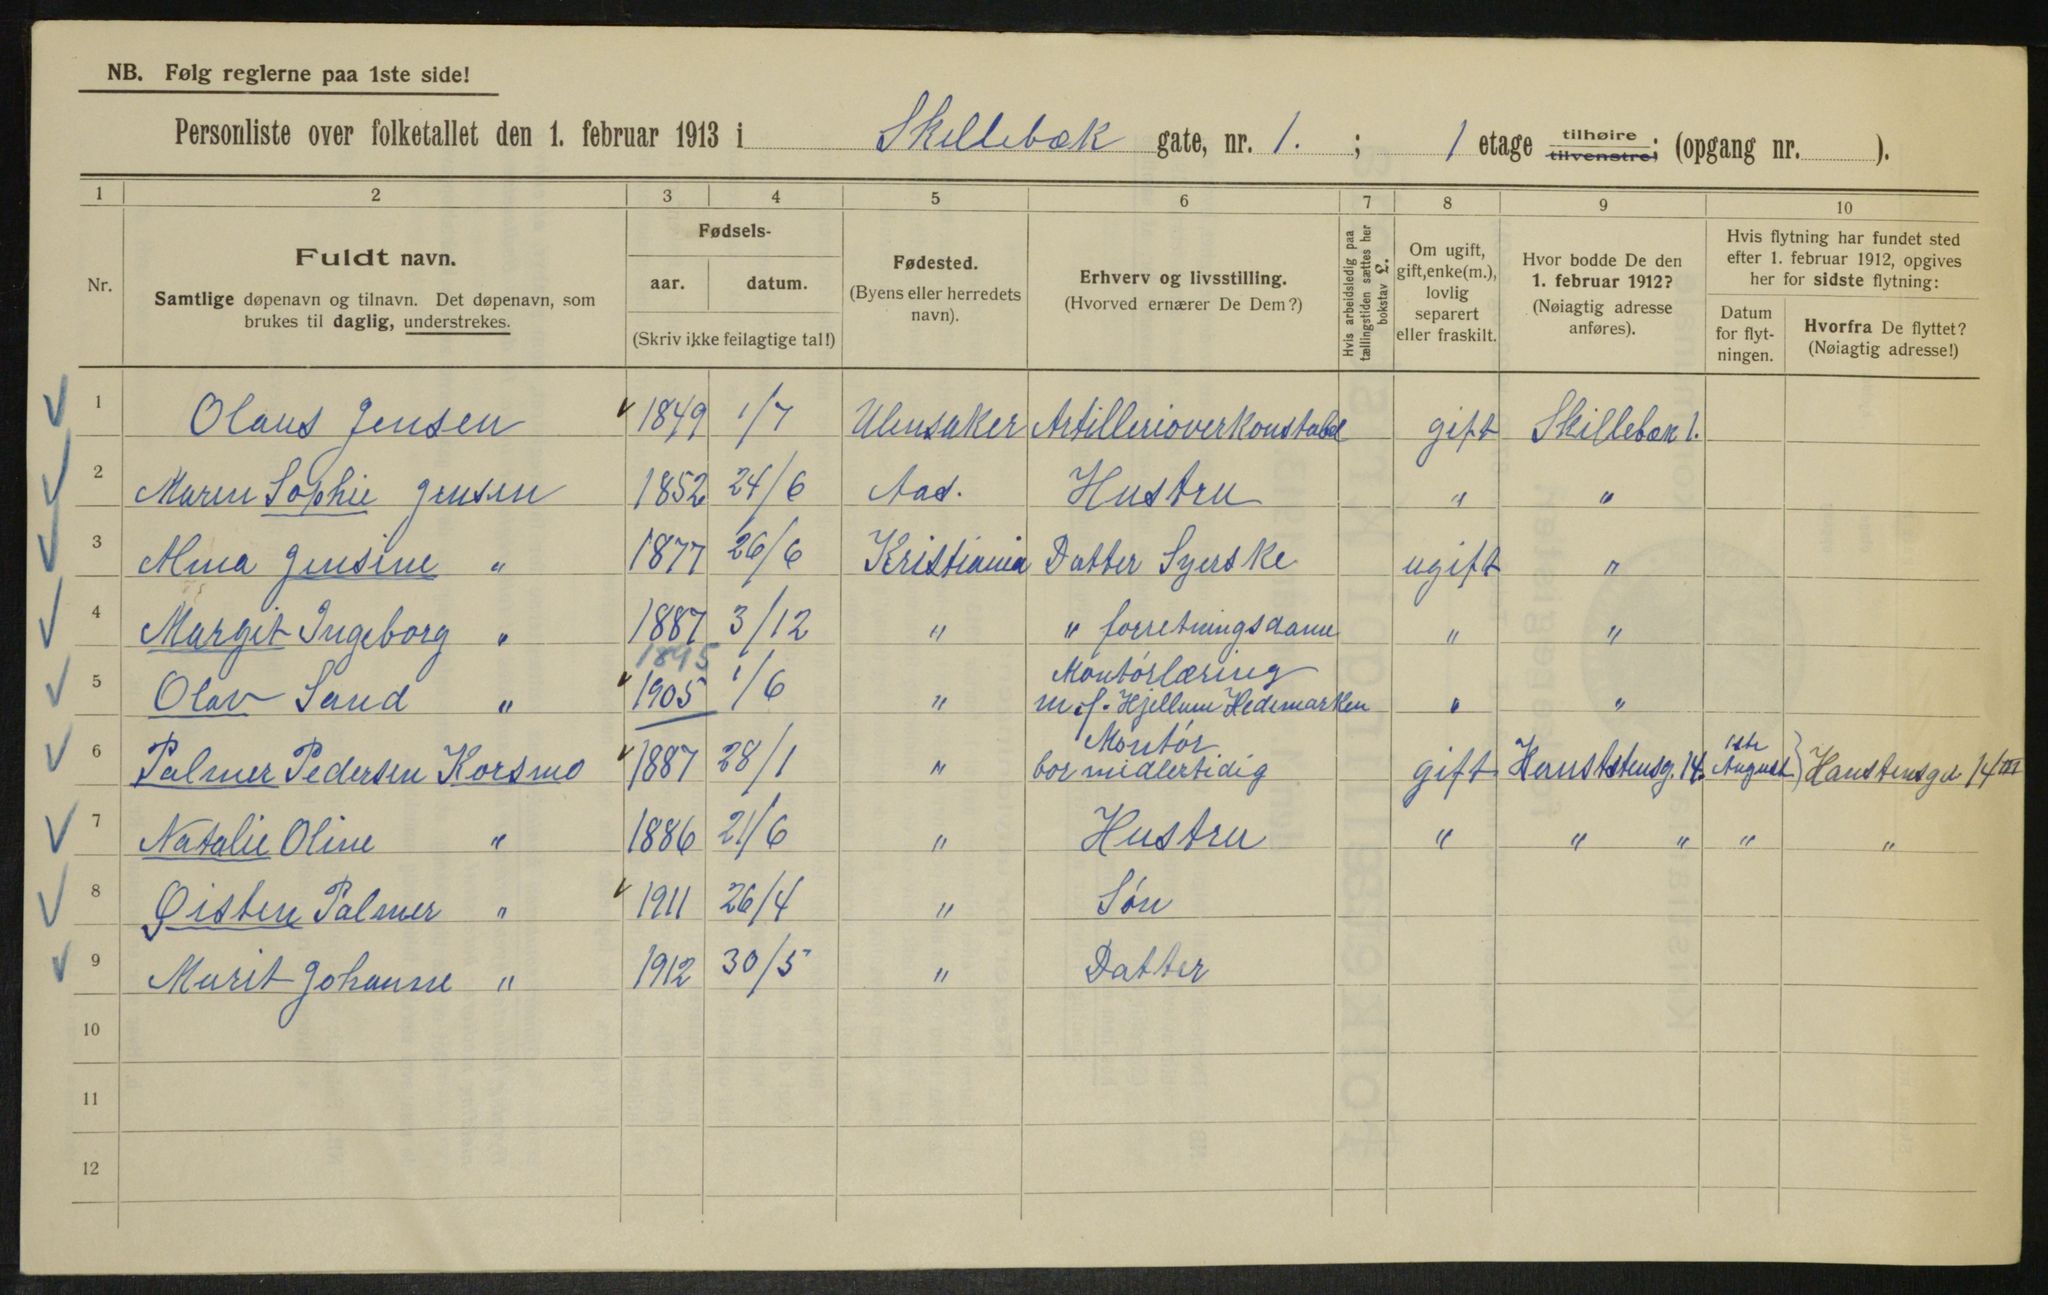 NB. Følg reglerne paa 1ste side!
Personliste over folketallet den 1. februar 1913 i Skillebæk gate, nr. 1. ; 1 etage tilhøire tilvenstre; (opgang nr. ).
1 2 3 4 5 6 7 8 9 10
Nr.
Fuldt navn.
Samtlige døpenavn og tilnavn. Det døpenavn, som
brukes til daglig, understrekes.
Fødsels-
aar. datum.
(Skriv ikke feilagtige tal!)
Fødested.
(Byens eller herredets
navn).
Erhverv og livsstilling.
(Hvorved ernærer De Dem?)
Hvis arbeidsledig paa
tællingstiden sættes her
bokstav £.
Om ugift,
gift, enke(m.),
lovlig
separert
eller fraskilt.
Hvor bodde De den
1. februar 1912?
(Nøiagtig adresse
anføres).
Hvis flytning har fundet sted
efter 1. februar 1912, opgives
her for sidste flytning:
Datum
for flyt-
ningen.
Hvorfra De flyttet?
(Nøiagtig adresse!)
1 Olaus Jensen 1849 1/7 Ulensaker Artillerioverkonstabel gift Skillebæk 1.
2 Maren Sophie Jensen 1852 24/6 Aas. Hustru " "
3 Alma Jensine " 1877 26/6 Kristiania Datter Syerske ugift "
4 Margit Ingeborg " 1887 3/12 " " forretningsdame " "
1895
5 Olav Sand " 1905 1/6 " Montörlæring
m. f. Hjellum Hedemarken " "
6 Palmer Pedersen Korsmo 1887 28/1 " Montör
bor midlertidig gift Hanstensg. 14. 1ste August } Hanstensgd 14 III
7 Natalie Oline " 1886 21/6 " Hustru " " " " "
8 Øisten Palmer " 1911 26/4 " Sön
9 Marit Johanne " 1912 30/5 " Datter
10
11
12